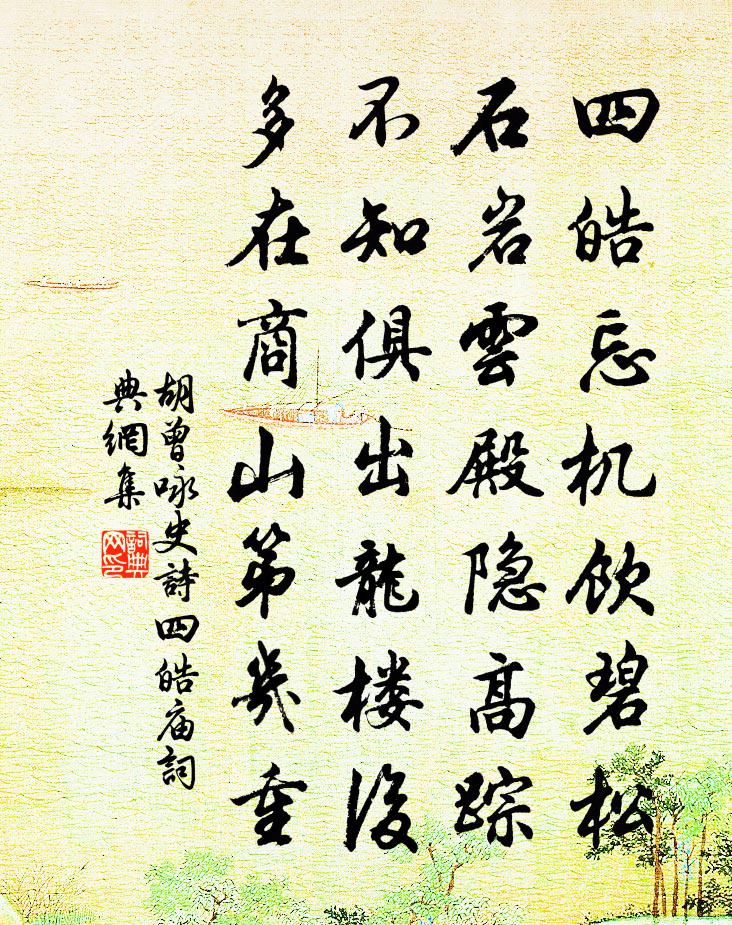 四皓忘机饮碧松
石岩雲殿隐高踪
不知俱出龍楼後
多在商山第几重
胡曾咏史詩四皓庙詞
典網集
詞典
网印